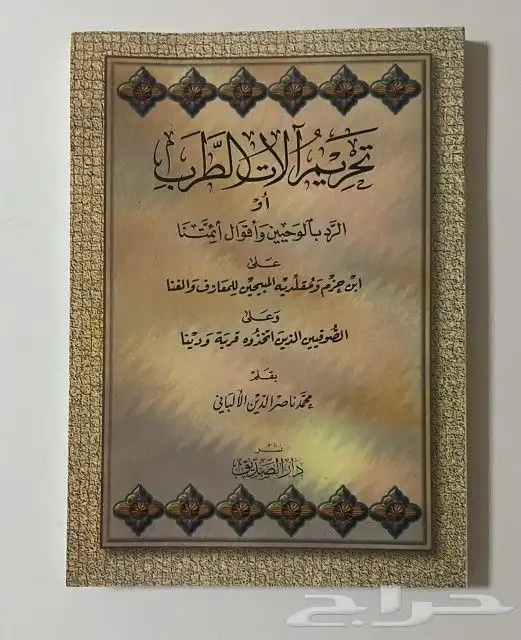 تحريم آلات الطرب
أو
الرد بالوحيين وأقوال أئمتنا
على
ابن حزم ومقلديه المبيحين للمعازف والغنا
وعلى
الصوفيين الذين اتخذوه قربة ودينا
بقلم
محمد ناصر الدين الألباني
نشر
دار الصديق
حراج